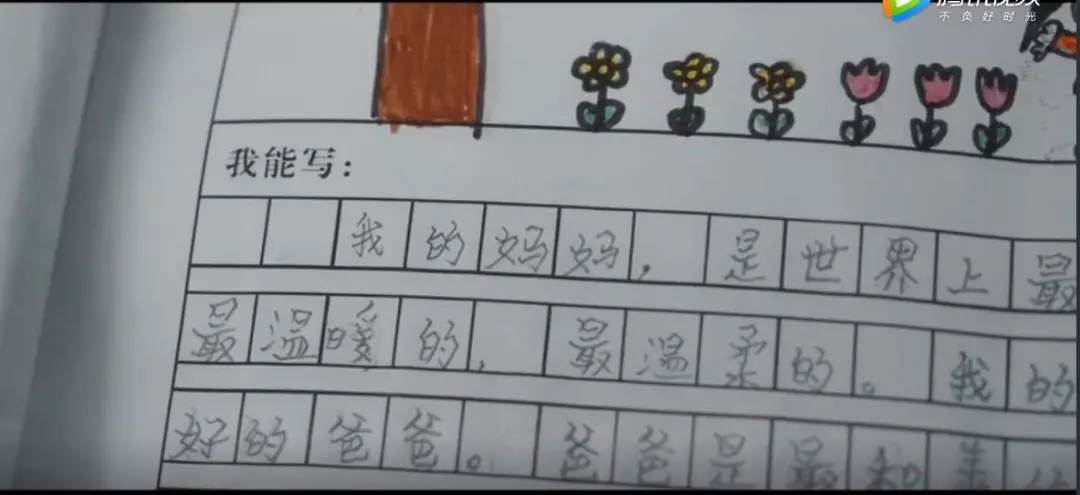 不负好时光
我能写：
我的妈妈，是世界上最
最温暖的，最温柔的。我的
好的爸爸。爸爸是最和善